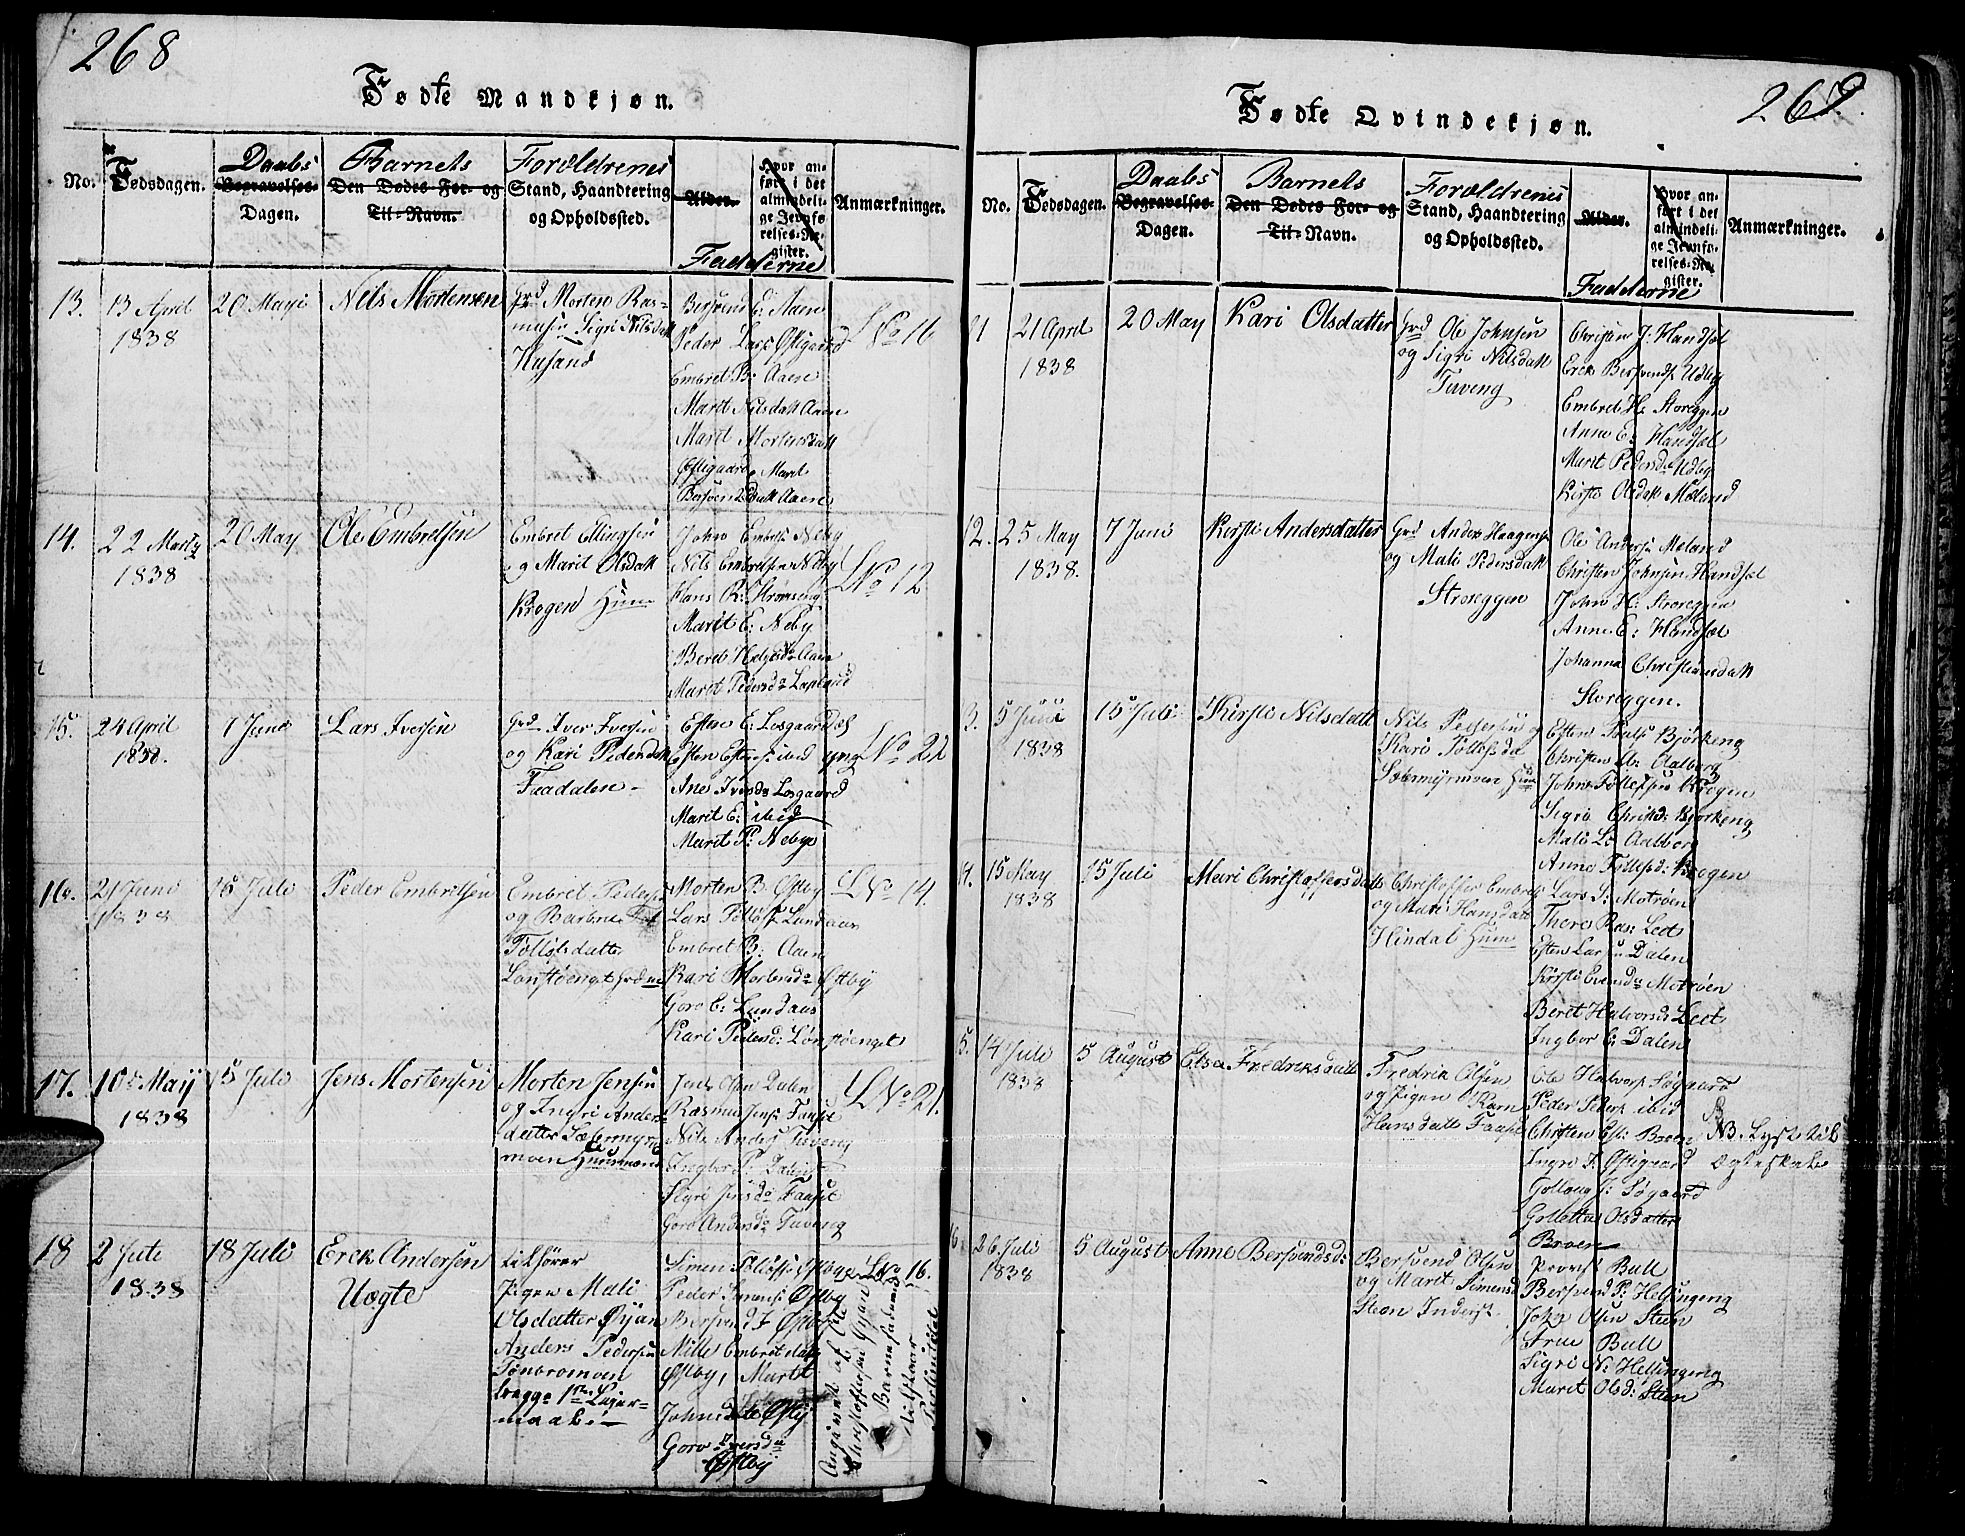 268
Fødte Mandkjøn.
No.
Fødsdagen.
Daabs
Begravelses-
Dagen.
Barnets
Den Dødes For- og
Til-Navn.
Forældrenes
Stand, Haandtering
og Opholdssted.
Alder.
Hvor an-
ført i det
almindeli-
ge Jevnfø-
relses-Re-
gister.
Fadderne
Anmærkninger.
13.
13 April
1838
20 Mayi
Nils Mortensen
Grd Morten Ras-
musen Sigri Nilsdatt
Husand
Bersvend E: Aaen
Peder Lars Østigaard
Embret B: Aaen
Marit Nilsdatt Aaen
Marit Mortensdatt
Østigaard, Marit
Bersvendsdatt Aaen
LNo 16
14.
22 Marty
1838
20 May
Ole Embretsen
Embret Ellingsen
og Marit Olsdatt
Krogen Huum
John Embrets Neby
Nils Embretsen Neby
Hans R: Strømseng
Marit E: Neby
Beret Helgesd: Aaen
Marit Pedersd:
LNo 12
15.
24 April
1838.
7 Juni
Lars Iversen
Grd Iver Iversen
og Kari Pedersdatt
Faadalen
Esten E: Losgaard
Esten Estens ibid yng
Ane Iversd: Losgaard
Marit E: ibid
Marit P: Neby
LNo 22
16.
21 Juni
1838
15 Juli
Peder Embretsen
Embret Peders
og Barbra
Tollefsdatter
Lonstøenget Grdmd
Morten B: Østby
Lars Tollefs: Lundaas
Embret B: Aaen
Kari Mortensd: Østby
Goro E: Lundaas
Kari Pedersd: Lønstøenget
LNo 14.
17.
10de May
1838
15 Juli
Jens Mortensen
Morten Jensen
og Ingri Anders
datter Sætermyr
moen Huusmænd
Jens Olsen Dalen
Rasmus Jens: Faaset
Nils Anders Tuveng
Ingbor P: Dalen
Sigri Jensd: Faaset
Goro Andersd: Tuveng
LNo 21.
18
2 Jule
1838
18 Juli
Erek Andersen
Uægte
tilhører
Pigen Mali
Olsdatter Øyan
Anders Pedersen
Tønbromoen
begge 1ste Leier-
maal
Simen Tollefs: Østby
Peder Simens: Østby
Bersvend J Østby
Nille Embretsdatt
Østby, Marit
Johnsdatt Østby
Goro Iversda
Østby
LNo 16.
Angivet af Ole
Christoffersen Øyan
Barnes
269
Fødte Qvindekjøn.
No.
Fødsdagen.
Daabs
Begravelses-
Dagen.
Barnets
Den Dødes For- og
Til-Navn.
Forældrenes
Stand, Haandtering
og Opholdssted.
Alder.
Hvor an-
ført i det
almindeli-
ge Jevnfø-
relses-Re-
gister.
Fadderne
Anmærkninger.
11
21 April
1838
20 May
Kari Olsdatter
Grd Ole Johnsen
og Sigri Nilsdatt
Tuveng
Christen J: Handsæl
Erek Bersvends Udby
Embret H: Storeggen
Anne E: Handsæl
Marit Pedersd: Udby
Kirsti Olsdatt Mæland
12.
25 May
1838.
7 Juni
Kirsti Andersdatter
Grd Anders Haagens
og Mali Pedersdatt
Storeggen
Ole Anders: Meland
Christen Johnsen Handsæl
John H: Storeggen
Anne E: Handsæl
Johanna Christiansdatt
Storeggen.
3.
5 Juni
1838
15 Juli
Kirsti Nilsdatt
Nils Pedersen og
Kari Tollefsda
Sætermyrmoen Huu
Esten Pauls Bjørkeng
Christen O: Aalberg
John Tollefsen Krogen
Sigri Christsd: Bjørkeng
Mali L: Aalberg
Anne Tollefsd: Krogen
4.
15 May
1838
15 Juli
Mari Christoffersdatt
Christoffer Embrets
og Mari Hansdatt
Hindal Huus
Lars S: Motrøen
Thore Ras: Leet
Esten Larsen Dalen
Kirsti Evensd: Motrøen
Beret Halvorsd: Leet
Ingbor E: Dalen
5.
14 Juli
1838
5 August
Elsa Fredriksdatt
Fredrik Olsen
og Pigen Karn
Hansdatt Faaset
Ole Halvors: Søgaard
Peder Peders ibid
Christen Est: Broen
Ingri T: Østigaard
Gollaug J: Søgaard
Golletta Olsdatter
Broen
NB. Lyst til
Ægteskab
6.
26 Juli
1838
5 August
Anne Bersvendsd:
Bersvend Olsen
og Marit Simensd
Steen Inderst
Provst Bull
Bersvend P: Hellingeng
John Olsen Steen
Frue Bull
Sigri N: Hellingeng
Marit Olsd: Steen